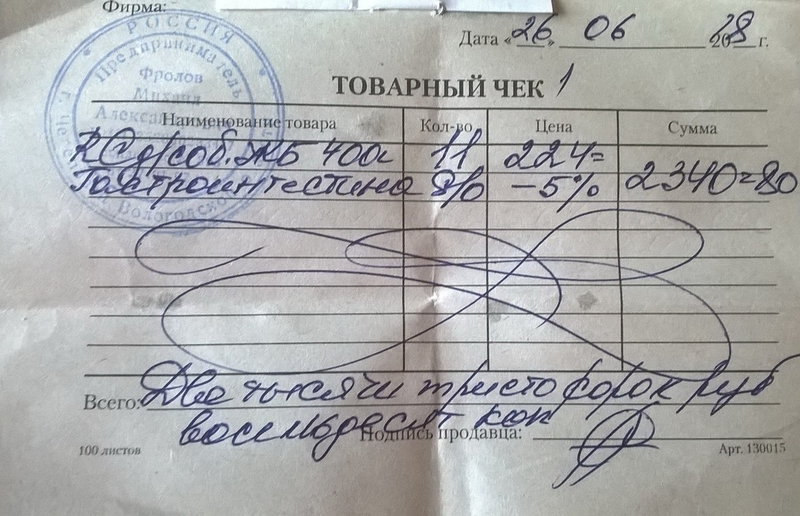 Фирма:
РОССИЯ
Предприниматель
Фролов
Михаил
Дата «26» 06 2018 г.
ТОВАРНЫЙ ЧЕК 1
Наименование товара Кол-во Цена Сумма
RC д/соб. ЖБ 400г 11 224=
Гастроинтестинал д/о -5% 2340=80
Всего: Две тысячи триста сорок руб
восемьдесят коп
Подпись продавца:
100 листов Арт. 130015